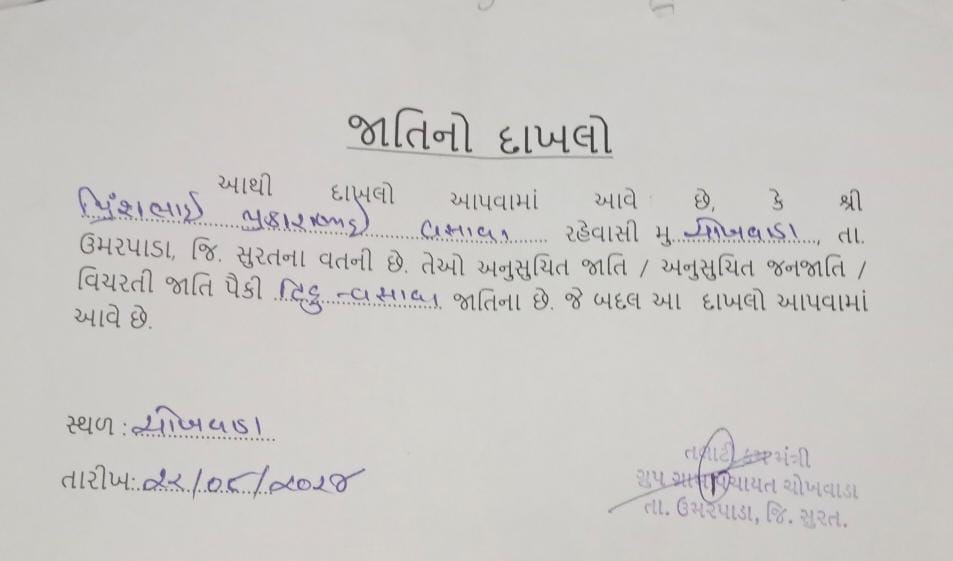 જાતિનો દાખલો
આથી દાખલો આપવામાં આવે છે, કે શ્રી
વસાવા રહેવાસી મુ. ચોખવાડા, તા.
ઉમરપાડા, જિ. સુરતના વતની છે. તેઓ અનુસુચિત જાતિ / અનુસુચિત જનજાતિ /
વિચરતી જાતિ પૈકી હિન્દુ વસાવા જાતિના છે. જે બદલ આ દાખલો આપવામાં
આવે છે.
સ્થળ: ચોખવાડા
તારીખ:
તલાટી કમ મંત્રી
ગ્રુપ ગ્રામ પંચાયત ચોખવાડા
તા. ઉમરપાડા, જિ. સુરત.